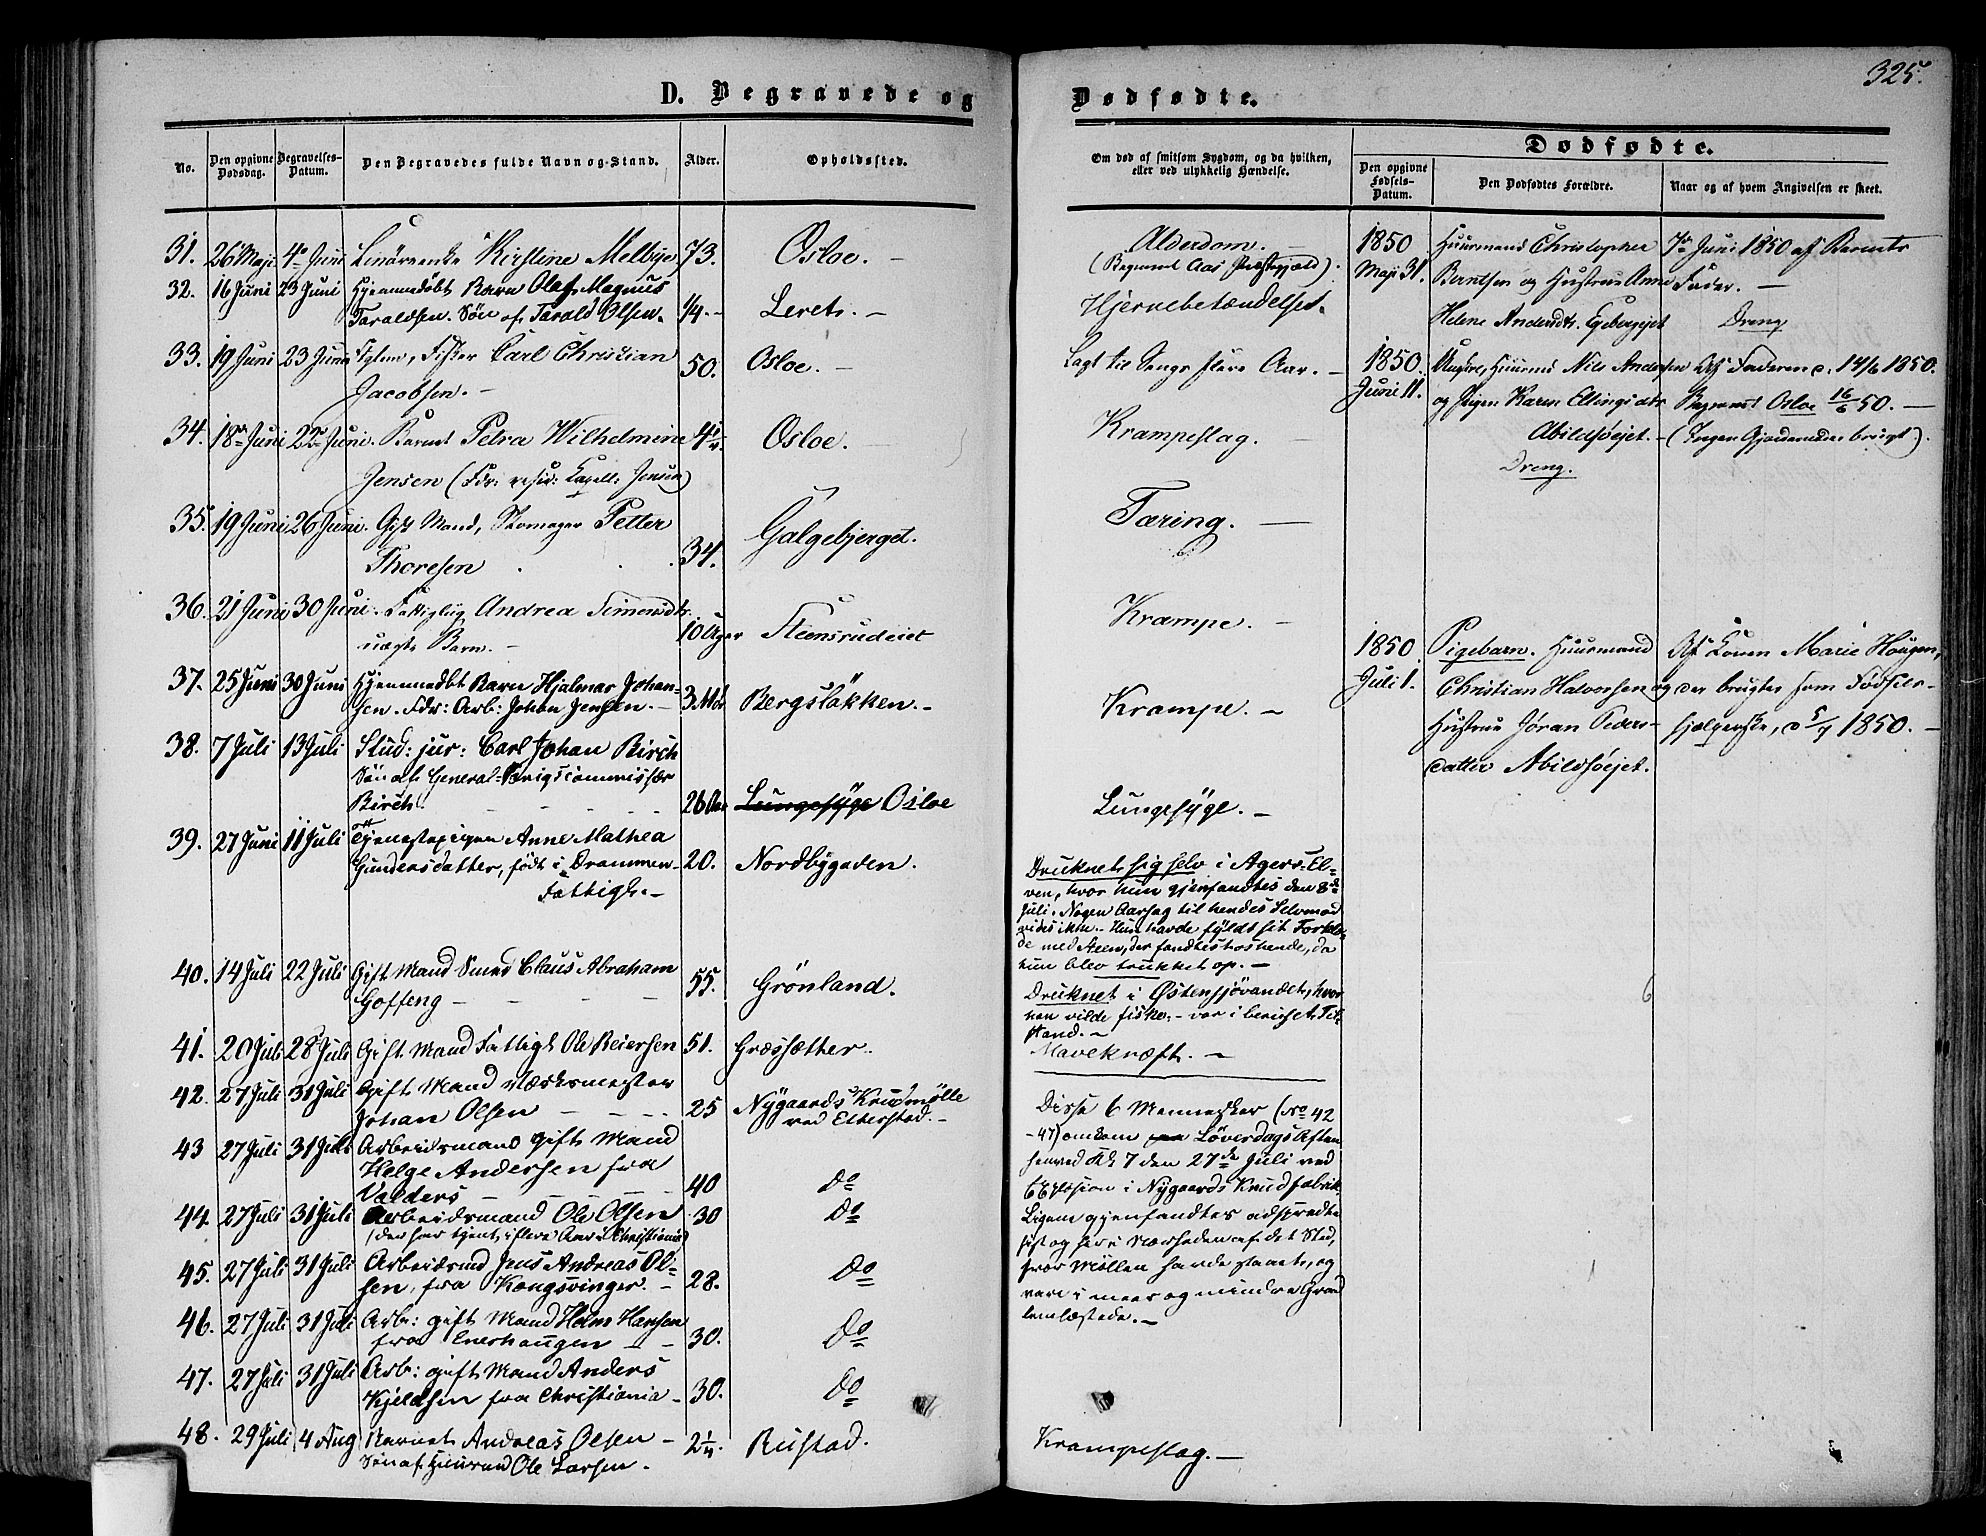 325.
D. Begravede og
Dødfødte.
No.
Den opgivne Dødsdag.
Begravelses-Datum.
Den Begravedes fulde Navn og Stand.
Alder.
Opholdssted.
Om død af smitsom Sygdom, og da hvilken,
eller ved ulykkelig Hændelse.
Dødfødte.
Den opgivne Fødsels-Datum.
Den Dødfødtes Forældre.
Naar og af hvem Angivelsen er skeet.
31. 26 Maji 4de Juni Kirstine Melbye 73. Osloe. -
32. 16 Juni 23 Juni Hjemmedøbt Barn Olaf Magnus
Taraldsen. Søn af Tarald Olsen. 1/4. - Leret. -
33. 19 Juni 23 Juni Fisker Carl Christian
Jacobsen. - 50. Osloe. -
34. 18de Juni 22de Juni. Barnet Petra Wilhelmine 4 Osloe.
Jensen (Fdr: resid: Kapell: Jensen)
35. 19 Juni 26 Juni. Gift Mand, Skomager Petter
Thoresen 34. Galgebjerget.
36. 21 Juni 30 Juni. Fattiglig Andrea Simensdtr.
uægte Barn. - 10 Uger Steensrudeiet
37. 25 Juni 30 Juni Hjemmedøbt Barn Hjalmar Johan-
sen. Fdr: Arb: Johan Jensen. - 3 Mdr Bergsløkken. -
38. 7 Juli 13 Juli Stud: jur: Carl Johan Birch
Søn af General-Krigscommissær
Birch. 26 Aar Lungesyge Osloe
39. 27 Juni 11 Juli Tjenestepigen Anne Mathea
Gundersdatter, født i Drammen - 20. Nordbygaden.
Fattigl. -
40. 14 Juli 22 Juli Gift Mand Smed Claus Abraham
Goffeng - 55. Grönland.
41. 20 Juli 28 Juli Gift Mand Fattigl Ole Reiersen 51. Græssætter.
42. 27 Juli 31 Juli Gift Mand Værksmester
Johan Olsen - 25 Nygaards Krudmølle
ved Etterstad. -
43 27 Juli 31 Juli Arbeidsmand gift Mand
Helge Andersen fra
Valders - 40 Do
44. 27 Juli 31 Juli Arbeidsmand Ole Olsen 30 Do
(der har tjent i flere Aar i Christiania)
45. 27 Juli 31 Juli Arbeidsmd Jens Andreas Ol-
sen, fra Kongsvinger. - 28. Do
46. 27 Juli 31 Juli Arb: gift Mand Hansen
fra Enerhaugen - 30. Do
47. 27 Juli 31 Juli Arb: gift Mand Anders
Kjeldsen fra Christiania - 30. Do
48. 29 Juli 4 Aug Barnet Andreas Olsen - 2 1/4. Rustad.
Søn af Huusmd Ole Larsen.
Alderdom. -
(Begravet Aas Præstegjæld).
Hjernebetændelse.
Lagt til Sengs flere Aar. -
Krampeslag. -
Tæring. -
Krampe. -
Krampe. -
Lungesyge. -
Druknet sig selv i Agers-El-
ven, hvor hun gjenfandtes den 8de
Juli. Nogen Aarsag til hendes Selvmord
vides ikke. - Hun havde fyldt sit Forklæ-
de med Steen, der fandtes hos hende, da
hun blev trukket op. -
Druknet i Østensjøvandet, hvor
han vilde fiske, - var i beruset Til-
stand. -
Mavekræft. -
Disse 6 Mennesker (No 42
-47) omkom Løverdags Aften
henved Kl 7 den 27de Juli ved
Explosion i Nygaards Krudfabrik
Ligene gjenfandtes adspredte
hist og her i Nærheden af det Sted,
hvor Møllen havde staaet, og
vare i meer og mindre Grad
lemlæstede. -
Krampeslag. -
1850
Maji 31.
Huusmand Christopher
Berntsen og Hustrue Anne
Helene Andersdtr. Egebergejet
7de Juni 1850 af Barnets
Fader. -
Dreng
1850.
Juni 11.
Ungkrl, Huusmd Nils Andersen
og Pigen Karen Ellingsdtr
Abildsøejet. -
Dreng.
Af Faderen d. 14/6 1850.
Begravet Osloe 16/6 50. -
(Ingen Gjordemoder brugt).
1850
Juli 1.
Pigebarn. Huusmand
Christian Halvorsen og
Hustrue Jöran Peders-
datter Abildsöejet.
Af Konen Marie Haugen,
der brugtes som Fødsels-
hjelperske, d 5/7 1850. -